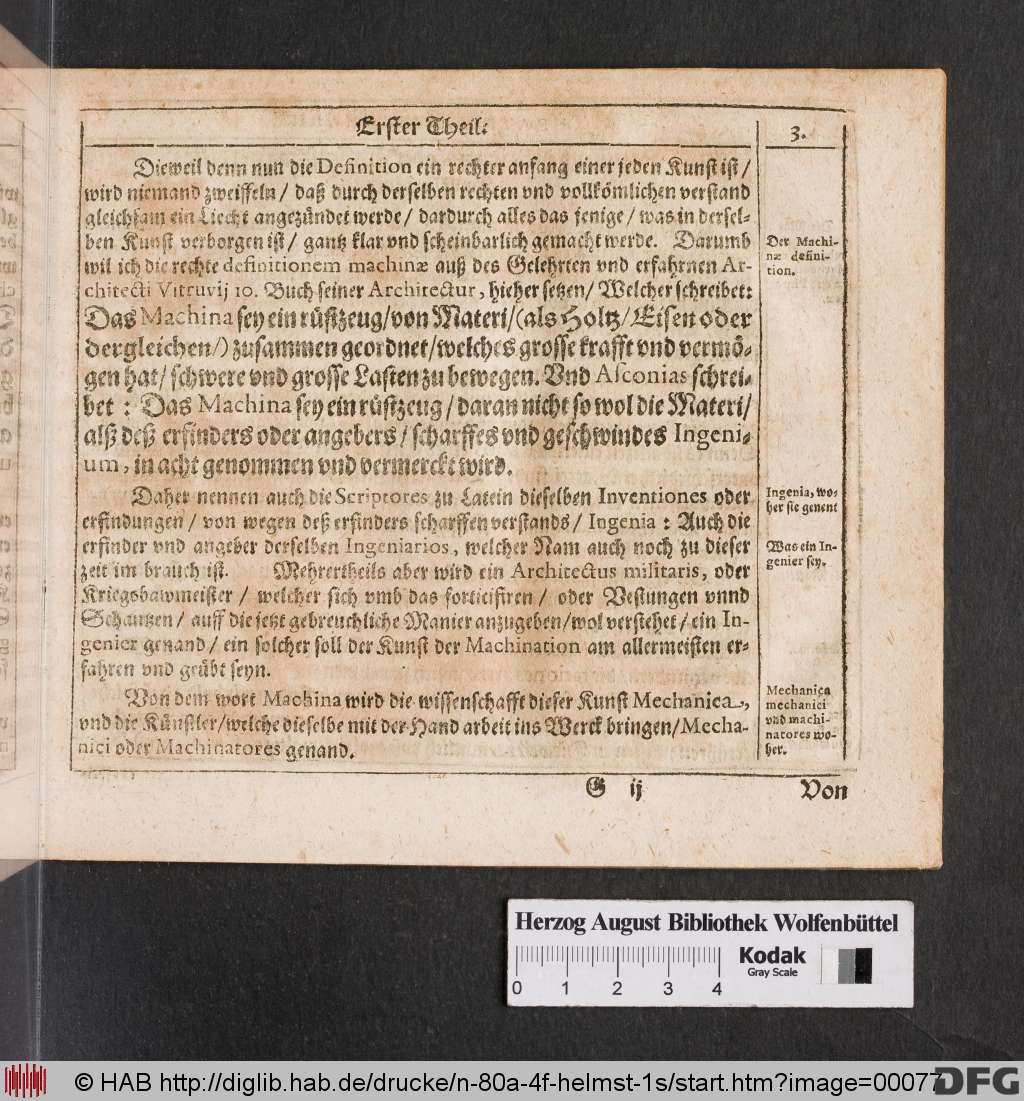 Erster Theil:
3.
Dieweil denn nun die Definition ein rechter anfang einer jeden Kunst ist /
wird niemand zweiffeln / daß durch derselben rechten vnd vollkömlichen verstand
gleichsam ein Liecht angezündet werde / dardurch alles das jenige / was in dersel-
ben Kunst verborgen ist / gantz klar vnd scheinbarlich gemacht werde. Darumb
wil ich die rechte definitionem machinæ auß des Gelehrten vnd erfahrnen Ar-
chitecti Vitruvij 10. Buch seiner Architectur, hieher setzen / Welcher schreibet:
Das Machina sey ein rüstzeug / von Materi / (als Holtz / Eisen oder
dergleichen /) zusammen geordnet / welches grosse krafft vnd vermö-
gen hat / schwere vnd grosse Lasten zu bewegen. Vnd Asconias schrei-
bet : Das Machina sey ein rüstzeug / daran nicht so wol die Materi /
alß deß erfinders oder angebers / scharffes vnd geschwindes Ingeni-
um, in acht genommen vnd vermerckt wird.
Daher nennen auch die Scriptores zu Latein dieselben Inventiones oder
erfindungen / von wegen deß erfinders scharffen verstands / Ingenia : Auch die
erfinder vnd angeber derselben Ingeniarios, welcher Nam auch noch zu dieser
zeit im brauch ist. Mehrertheils aber wird ein Architectus militaris, oder
Kriegsbawmeister / welcher sich vmb das forticifiren / oder Vestungen vnnd
Schantzen / auff die jetzt gebreuchliche Manier anzugeben / wol verstehet / ein In-
genier genand / ein solcher soll der Kunst der Machination am allermeisten er-
fahren vnd geübt seyn.
Von dem wort Machina wird die wissenschafft dieser Kunst Mechanica,
vnd die Künstler / welche dieselbe mit der Hand arbeit ins Werck bringen / Mecha-
nici oder Machinatores genand.
Der Machi-
næ defini-
tion.
Ingenia, wo-
her sie genent
Was ein In-
genier sey.
Mechanica
mechanici
vnd machi-
natores wo-
her.
G ij
Von
Herzog August Bibliothek Wolfenbüttel
0 1 2 3 4
Kodak
Gray Scale
© HAB http://diglib.hab.de/drucke/n-80a-4f-helmst-1s/start.htm?image=00077
DFG